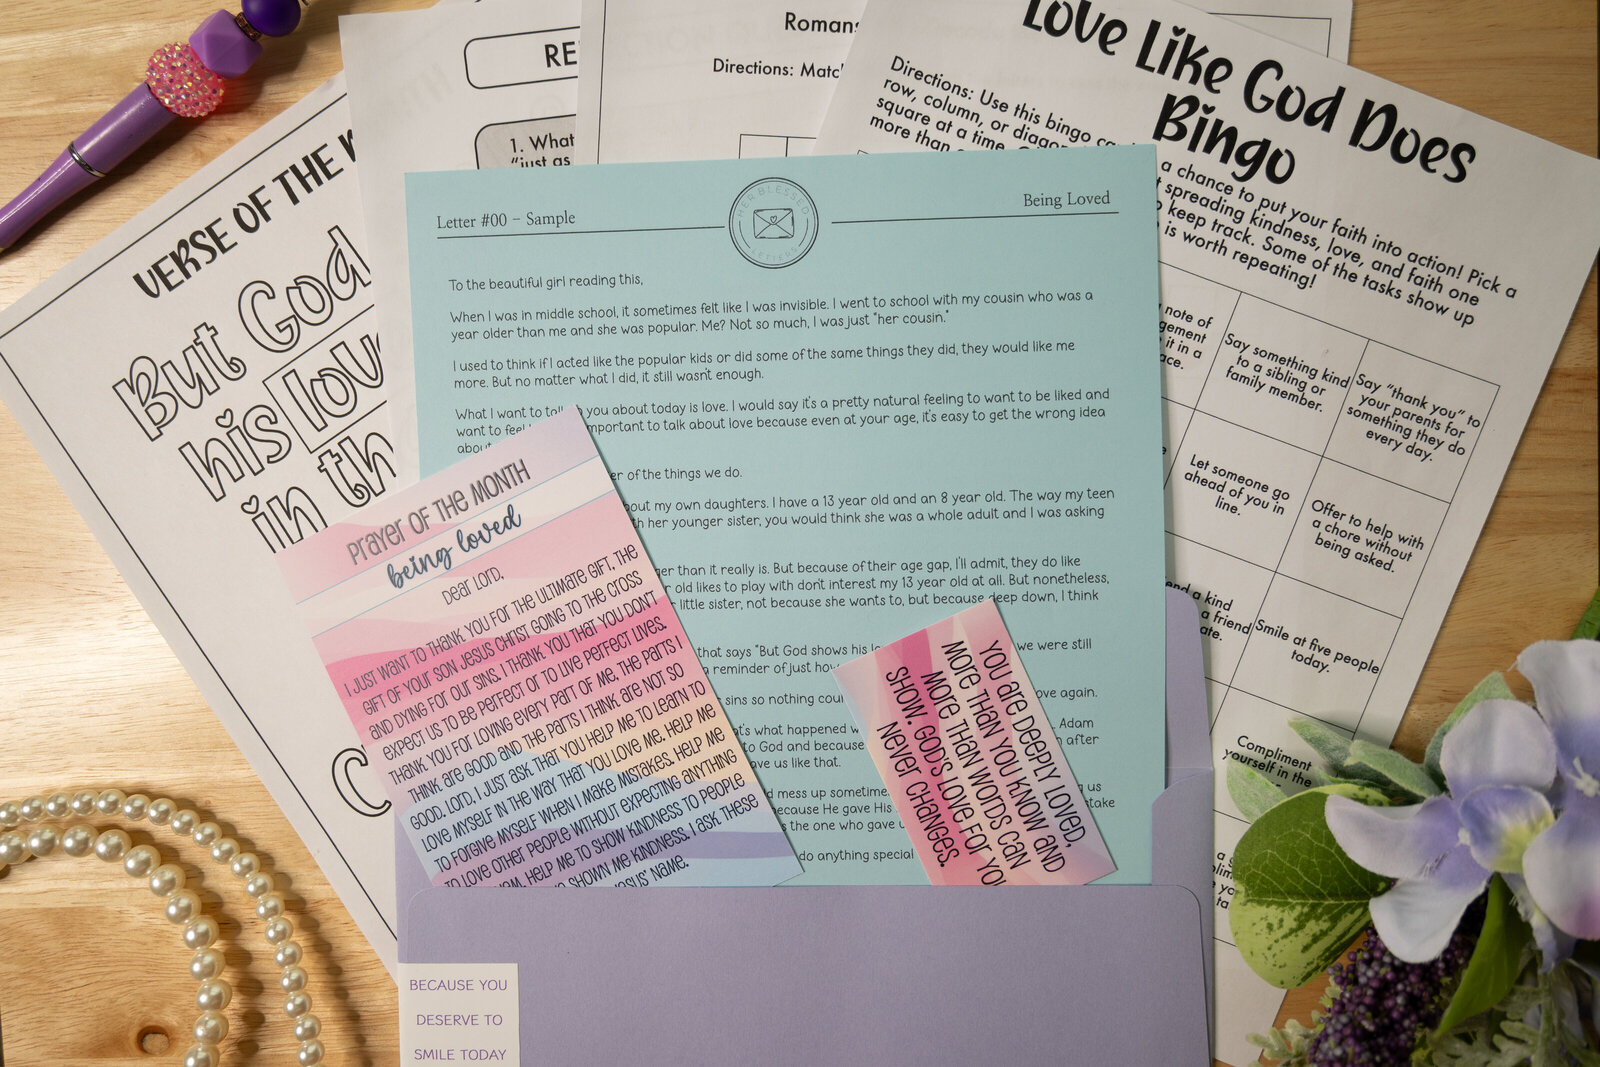 VERSE OF THE
But God
his
in th
C
RE
1. What
"just as
Romans
Directions: Matc
Love Like God Does
Bingo
Directions: Use this bingo
a chance to put your faith into action! Pick a
row, column, or
spreading kindness, love, and faith one
square at a time.
keep track. Some of the tasks show up
more than
is worth repeating!
note of
it in a
Say something kind
to a sibling or
family member.
Say "thank you" to
your parents for
something they do
every day.
Let someone go
ahead of you in
line.
Offer to help with
a chore without
being asked.
a kind
a friend
Smile at five people
today.
Compliment
yourself in the
Letter #00 – Sample
HER BLESSED
LETTERS
Being Loved
To the beautiful girl reading this,
When I was in middle school, it sometimes felt like I was invisible. I went to school with my cousin who was a
year older than me and she was popular. Me? Not so much, I was just "her cousin."
I used to think if I acted like the popular kids or did some of the same things they did, they would like me
more. But no matter what I did, it still wasn't enough.
What I want to you about today is love. I would say it's a pretty natural feeling to want to be liked and
want to feel important to talk about love because even at your age, it's easy to get the wrong idea
about
of the things we do.
my own daughters. I have a 13 year old and an 8 year old. The way my teen
her younger sister, you would think she was a whole adult and I was asking
than it really is. But because of their age gap, I'll admit, they do like
old likes to play with don't interest my 13 year old at all. But nonetheless,
little sister, not because she wants to, but because deep down, I think
that says "But God shows his we were still
a reminder of just how
sins so nothing love again.
what happened Adam
to God and because after
us like that.
mess up us
because He gave His
the one who gave
do anything special
PRAYER OF THE MONTH
being loved
DEAR LORD,
I JUST WANT TO THANK YOU FOR THE ULTIMATE GIFT, THE
GIFT OF YOUR SON JESUS CHRIST GOING TO THE CROSS
AND DYING FOR OUR SINS. I THANK YOU THAT YOU DON'T
EXPECT US TO BE PERFECT OR TO LIVE PERFECT LIVES.
THANK YOU FOR LOVING EVERY PART OF ME, THE PARTS I
THINK ARE GOOD AND THE PARTS I THINK ARE NOT SO
GOOD. LORD, I JUST ASK THAT YOU HELP ME TO LEARN TO
LOVE MYSELF IN THE WAY THAT YOU LOVE ME. HELP ME
TO FORGIVE MYSELF WHEN I MAKE MISTAKES. HELP ME
TO LOVE OTHER PEOPLE WITHOUT EXPECTING ANYTHING
HELP ME TO SHOW KINDNESS TO PEOPLE
SHOWN ME KINDNESS. I ASK THESE
NAME.
YOU ARE DEEPLY LOVED,
MORE THAN YOU KNOW AND
MORE THAN WORDS CAN
SHOW. GOD'S LOVE FOR YOU
NEVER CHANGES.
BECAUSE YOU
DESERVE TO
SMILE TODAY